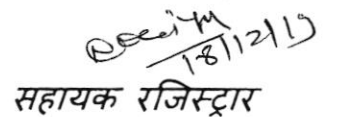 18/12/19
सहायक रजिस्ट्रार